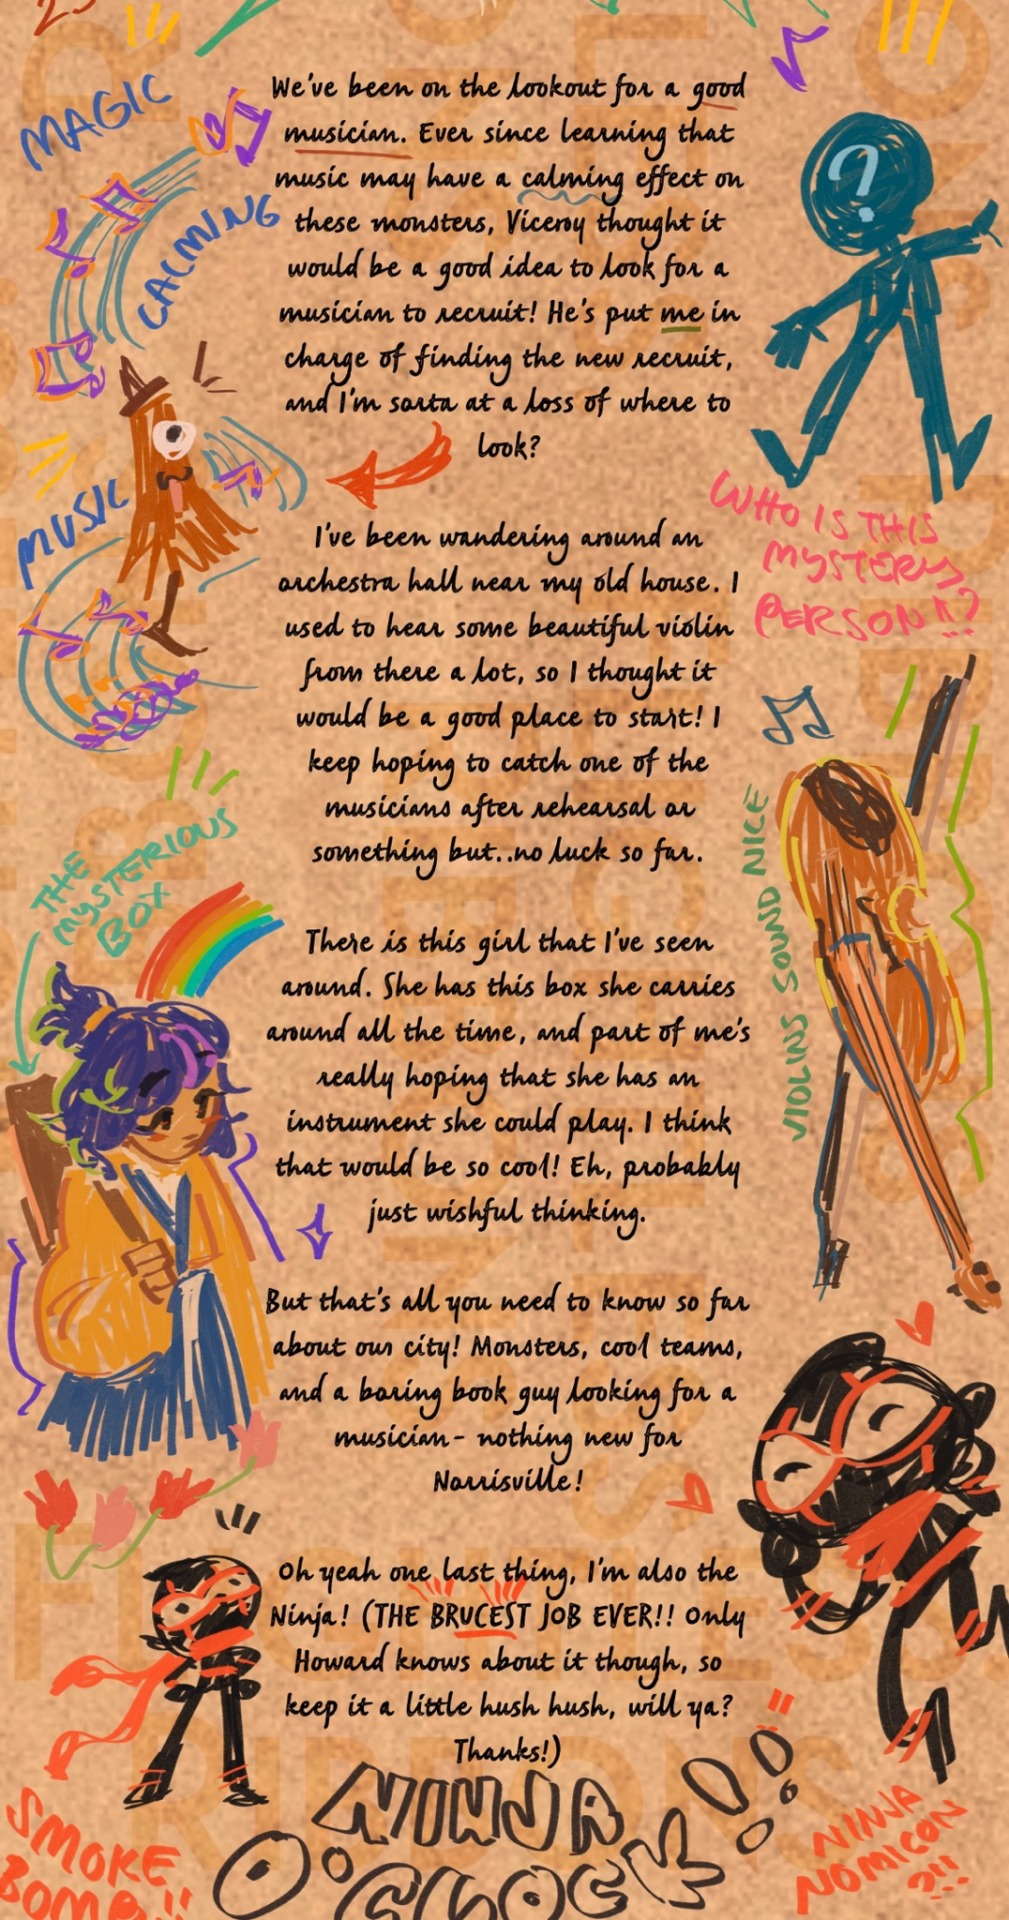 MAGIC
CALMING
MUSIC
We've been on the lookout for a good
musician. Ever since learning that
music may have a calming effect on
these monsters, Viceroy thought it
would be a good idea to look for a
musician to recruit! He's put me in
charge of finding the new recruit,
and I'm sorta at a loss of where to
look?
?
WHO IS THIS
MYSTERY
PERSON!!?
I've been wandering around an
orchestra hall near my old house. I
used to hear some beautiful violin
from there a lot, so I thought it
would be a good place to start! I
keep hoping to catch one of the
musicians after rehearsal or
something but..no luck so far.
VIOLINS SOUND NICE
THE
MYSTERIOUS
BOX
There is this girl that I've seen
around. She has this box she carries
around all the time, and part of me's
really hoping that she has an
instrument she could play. I think
that would be so cool! Eh, probably
just wishful thinking.
But that's all you need to know so far
about our city! Monsters, cool teams,
and a boring book guy looking for a
musician- nothing new for
Norrisville!
Oh yeah one last thing, I'm also the
Ninja! (THE BRUCEST JOB EVER!! Only
Howard knows about it though, so
keep it a little hush hush, will ya?
Thanks!)
SMOKE
BOMB!!
NINJA
O'CLOCK!!
NINJA
NOMICON
?!!